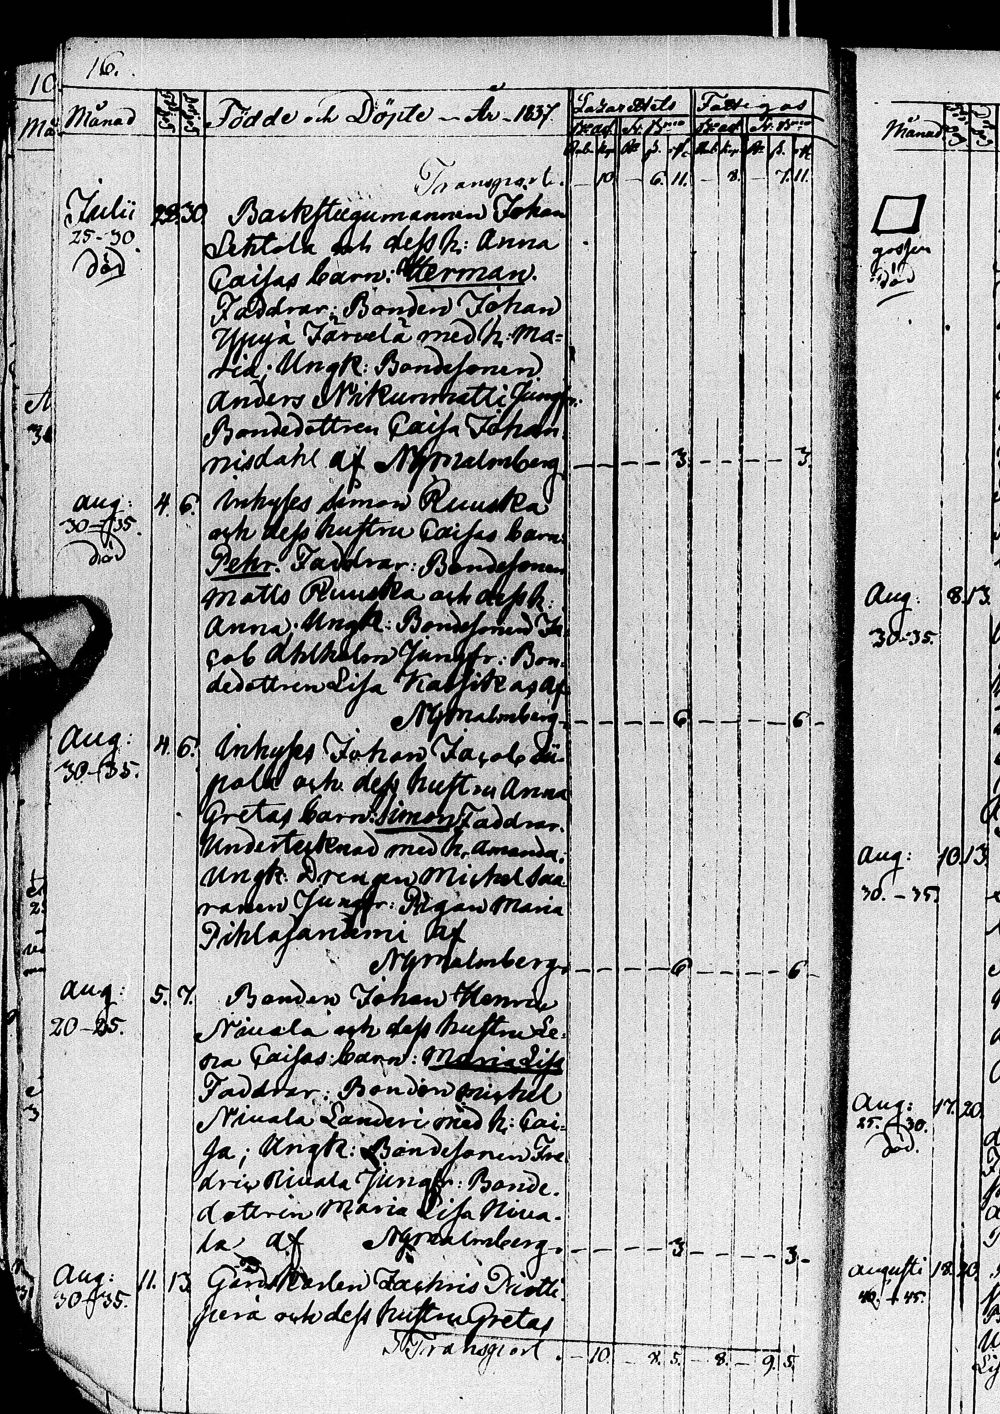 16.
10
Månad
Födde och Döpte — År 1837.
Lazarettets
Fattigas
Transport.
10 6. 11. 8. 7. 11.
Julii 28. 30. Backstugumannen Johan
25-30
död
och dess h: Anna
Caisas barn: Herman.
Faddrar: Bonden Johan
Yppyä Järvelä med h: Ma=
ria; Ungk: Bondesonen
Anders Nikunmatti Jungfr:
Bondedottren Caisa Johan
nisdahl af NGrmalmberg
3 3.
Aug: 4. 6. Inhyses Simon Ruuska
30-35.
död
och dess hustru Caisas barn
Pehr. Faddrar: Bondesonen
Matts Ruuska och dess h:
Anna, Ungk: Bondesonen Ja
cob Ahlholm Jungfr: Bon
dedottren Lisa Kassikas af
NGrmalmberg.
6 6.
Aug: 4. 6. Inhyses Johan Jacob
30-35.
pola och dess hustru Anna
Gretas barn: Simon Faddrar.
Undertecknad med h. Amanda;
Ungk: Drengen Mickel Saa
ranen Jungfr: Pigan Maria
Pihlajaniemi af
NGrmalmberg.
6 6.
Aug: 5. 7. Bonden Johan Henric
20-25.
Niuala och dess hustru Le=
na Caisas barn: Maria Lisa
Faddrar: Bonden Mickel
Niuala Landeri med h: Cai=
sa; Ungk: Bondesonen Fre
dric Niuala Jungfr: Bonde.
dottren Maria Lisa Niua=
la af NGrmalmberg.
3 3.
Aug: 11. 13. Gårdskarlen Zachris
30-35.
perä och dess hustru Gretas
Transport. 10. 8. 5. 8. 9. 5.
Månad
gossen
död
Aug: 8. 13.
30-35.
Aug: 10. 13.
30.-35.
Aug: 17. 20.
25.-30.
död.
Augusti 18. 20.
40.-45.